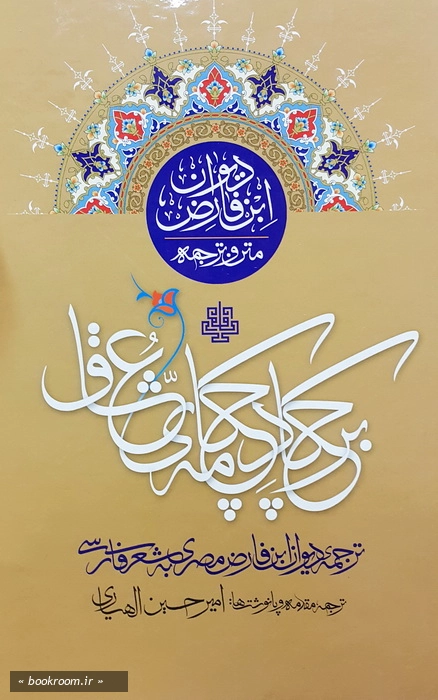 دیوان
ابن فارض
متن و ترجمه
بر چکاد چکامه‌های عُشّاق
ترجمهٔ دیوان ابن فارض مصری به شعر فارسی
ترجمه مقدمه و پانوشت‌ها: امیرحسین الهیاری
« bookroom.ir »